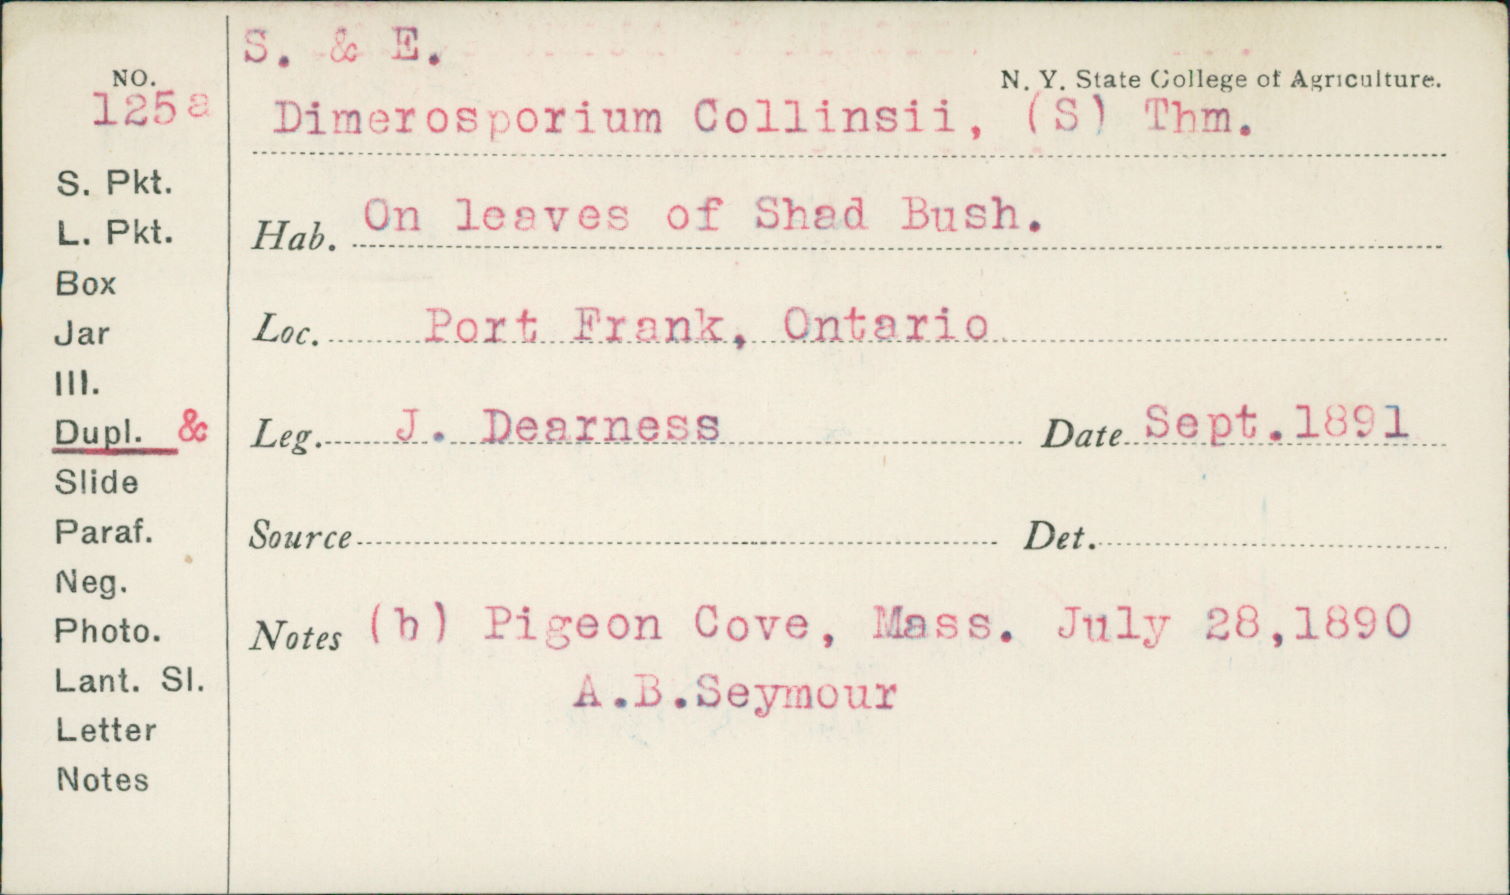 S. & E.
NO.
N. Y. State College of Agriculture.
125a
Dimerosporium Collinsii, (S) Thm.
S. Pkt.
L. Pkt.
Hab. On leaves of Shad Bush.
Box
Jar
Loc. Port Frank, Ontario
Ill.
Dupl. &
Leg. J. Dearness Date Sept.1891
Slide
Paraf.
Source Det.
Neg.
Photo.
Notes (b) Pigeon Cove, Mass. July 28,1890
Lant. Sl.
A.B.Seymour
Letter
Notes